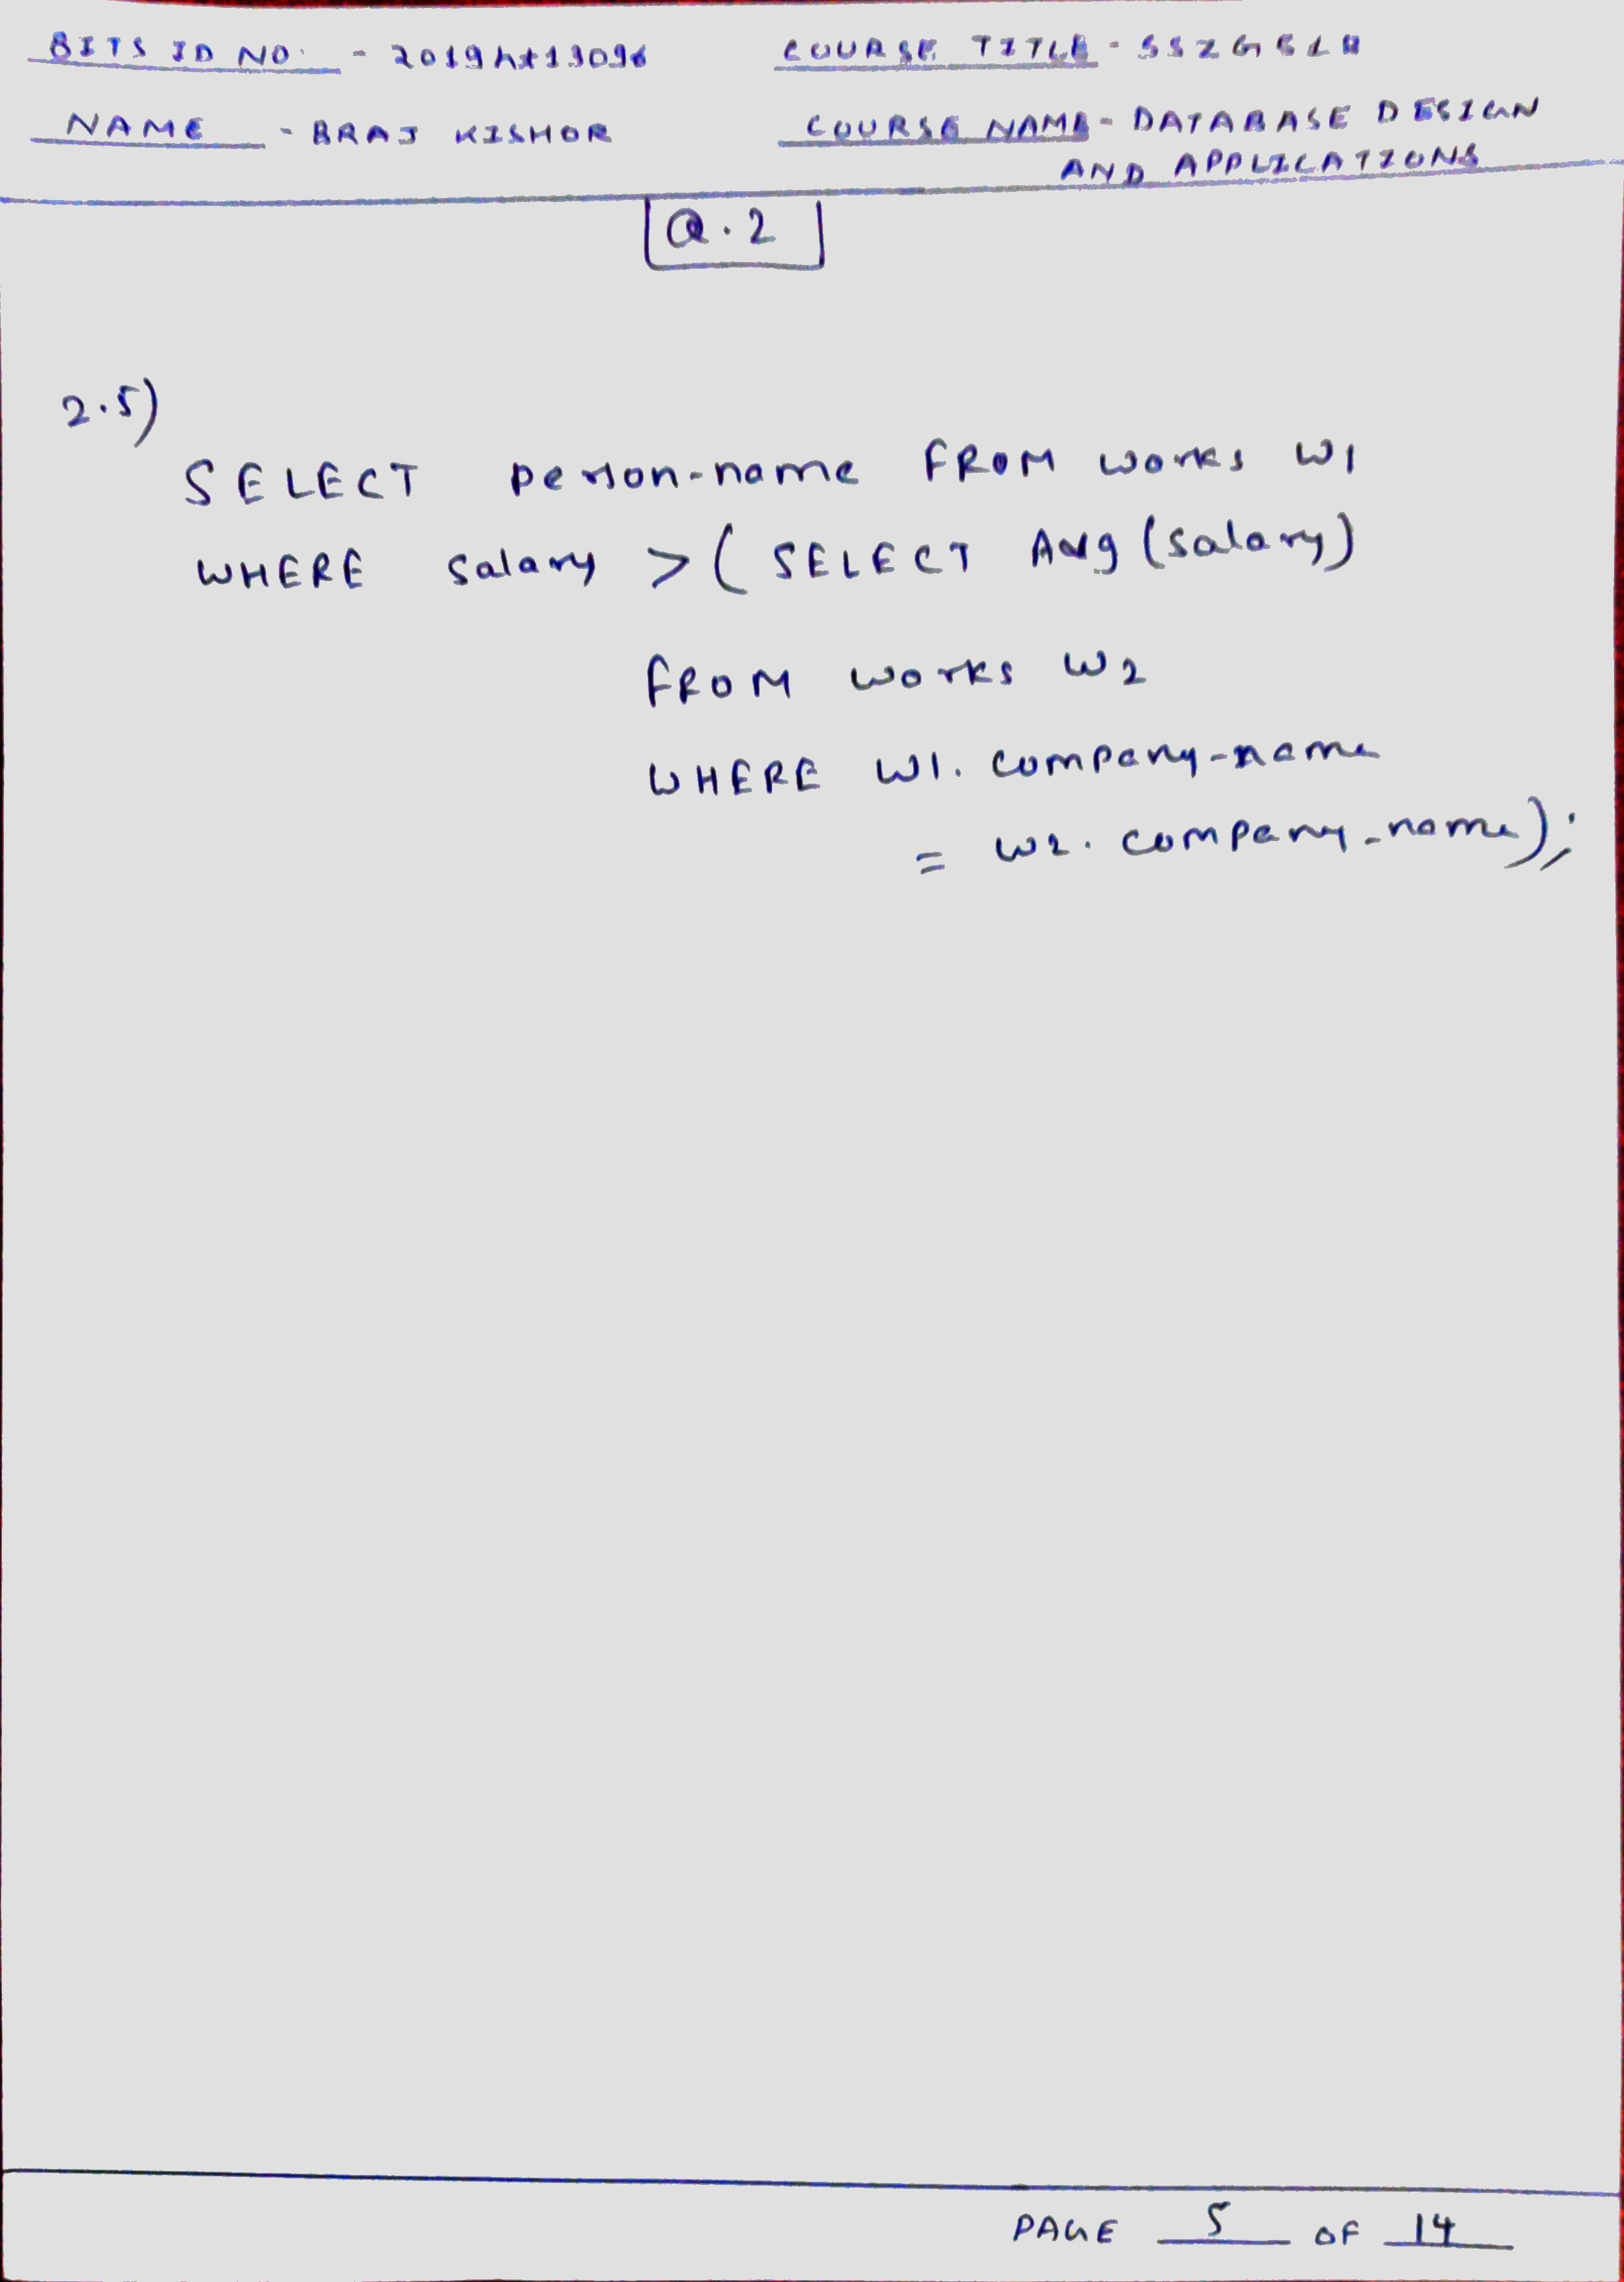 BITS ID NO. - 2019ht13096 COURSE TITLE - SSZG518
NAME - BRAJ KISHOR COURSE NAME - DATABASE DESIGN
AND APPLICATIONS
Q.2
2.5)
SELECT person-name FROM works W1
WHERE salary > ( SELECT Avg (salary)
FROM works W2
WHERE W1. company-name
= W2. company-name);
PAGE 5 OF 14